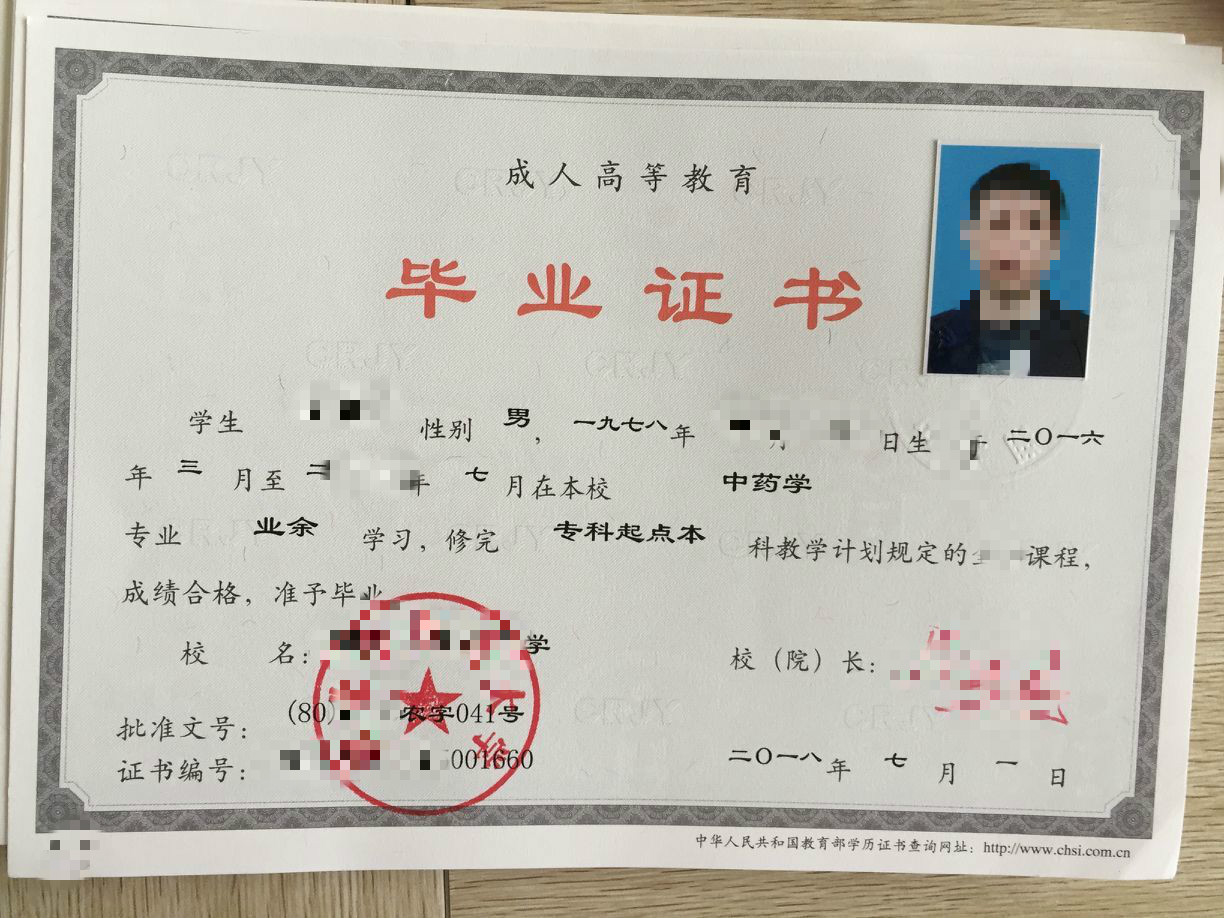 成人高等教育
毕业证书
学生 性别 男, 一九七八年 日生 于 二〇一六
年 三 月至 二 年 七 月在本校 中药学
专业 业余 学习, 修完 专科起点本 科教学计划规定的 课程,
成绩合格, 准予毕业
校 名: 学 校(院)长:
批准文号: (80) 农字041号
证书编号: 001660 二〇一八年 七 月 一 日
中华人民共和国教育部学历证书查询网址: http://www.chsi.com.cn